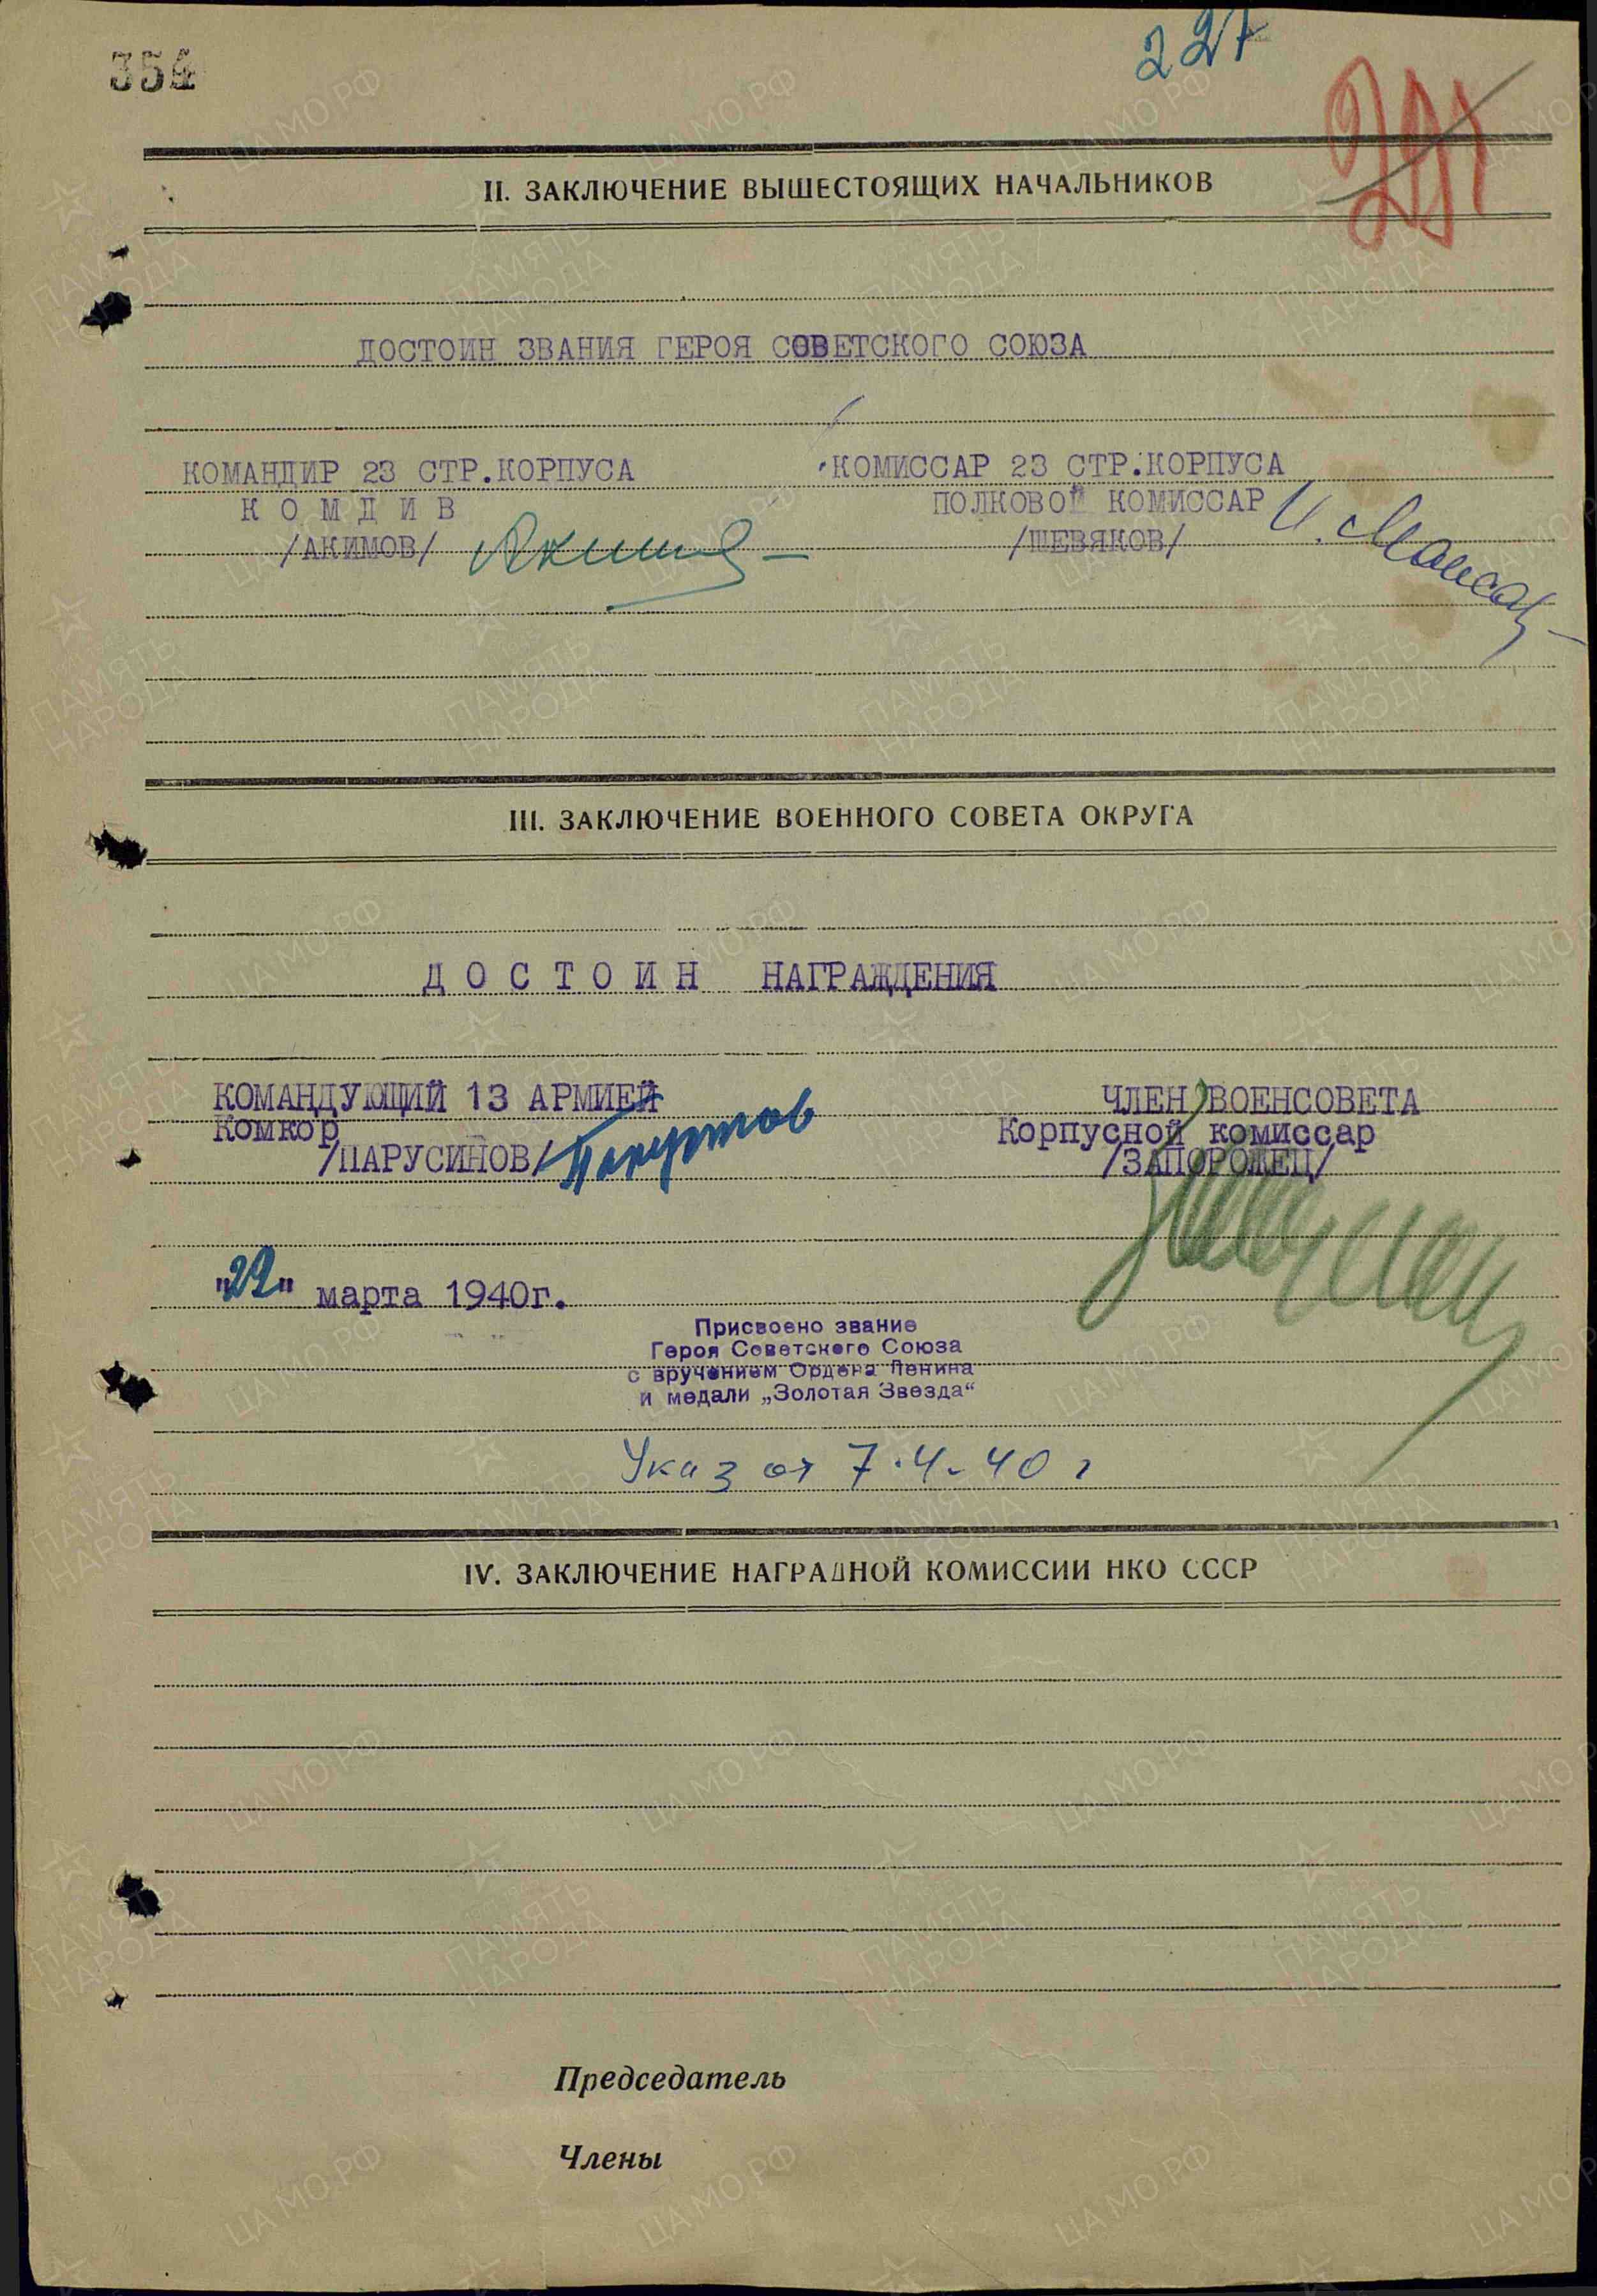 354
227
291
II. ЗАКЛЮЧЕНИЕ ВЫШЕСТОЯЩИХ НАЧАЛЬНИКОВ
ДОСТОИН ЗВАНИЯ ГЕРОЯ СОВЕТСКОГО СОЮЗА
КОМАНДИР 23 СТР.КОРПУСА
К О М Д И В
/АКИМОВ/ Акимов
КОМИССАР 23 СТР.КОРПУСА
ПОЛКОВОЙ КОМИССАР
/ШЕВЯКОВ/
III. ЗАКЛЮЧЕНИЕ ВОЕННОГО СОВЕТА ОКРУГА
Д О С Т О И Н НАГРАЖДЕНИЯ
КОМАНДУЮЩИЙ 13 АРМИЕЙ
Комкор
/ПАРУСИНОВ/
ЧЛЕН ВОЕНСОВЕТА
Корпусной комиссар
/ЗАПОРОЖЕЦ/
"22" марта 1940г.
Присвоено звание
Героя Советского Союза
с вручением Ордена Ленина
и медали „Золотая Звезда“
Указ от 7.4.40 г
IV. ЗАКЛЮЧЕНИЕ НАГРАДНОЙ КОМИССИИ НКО СССР
Председатель
Члены
ПАМЯТЬ
НАРОДА
ЦА МО РФ